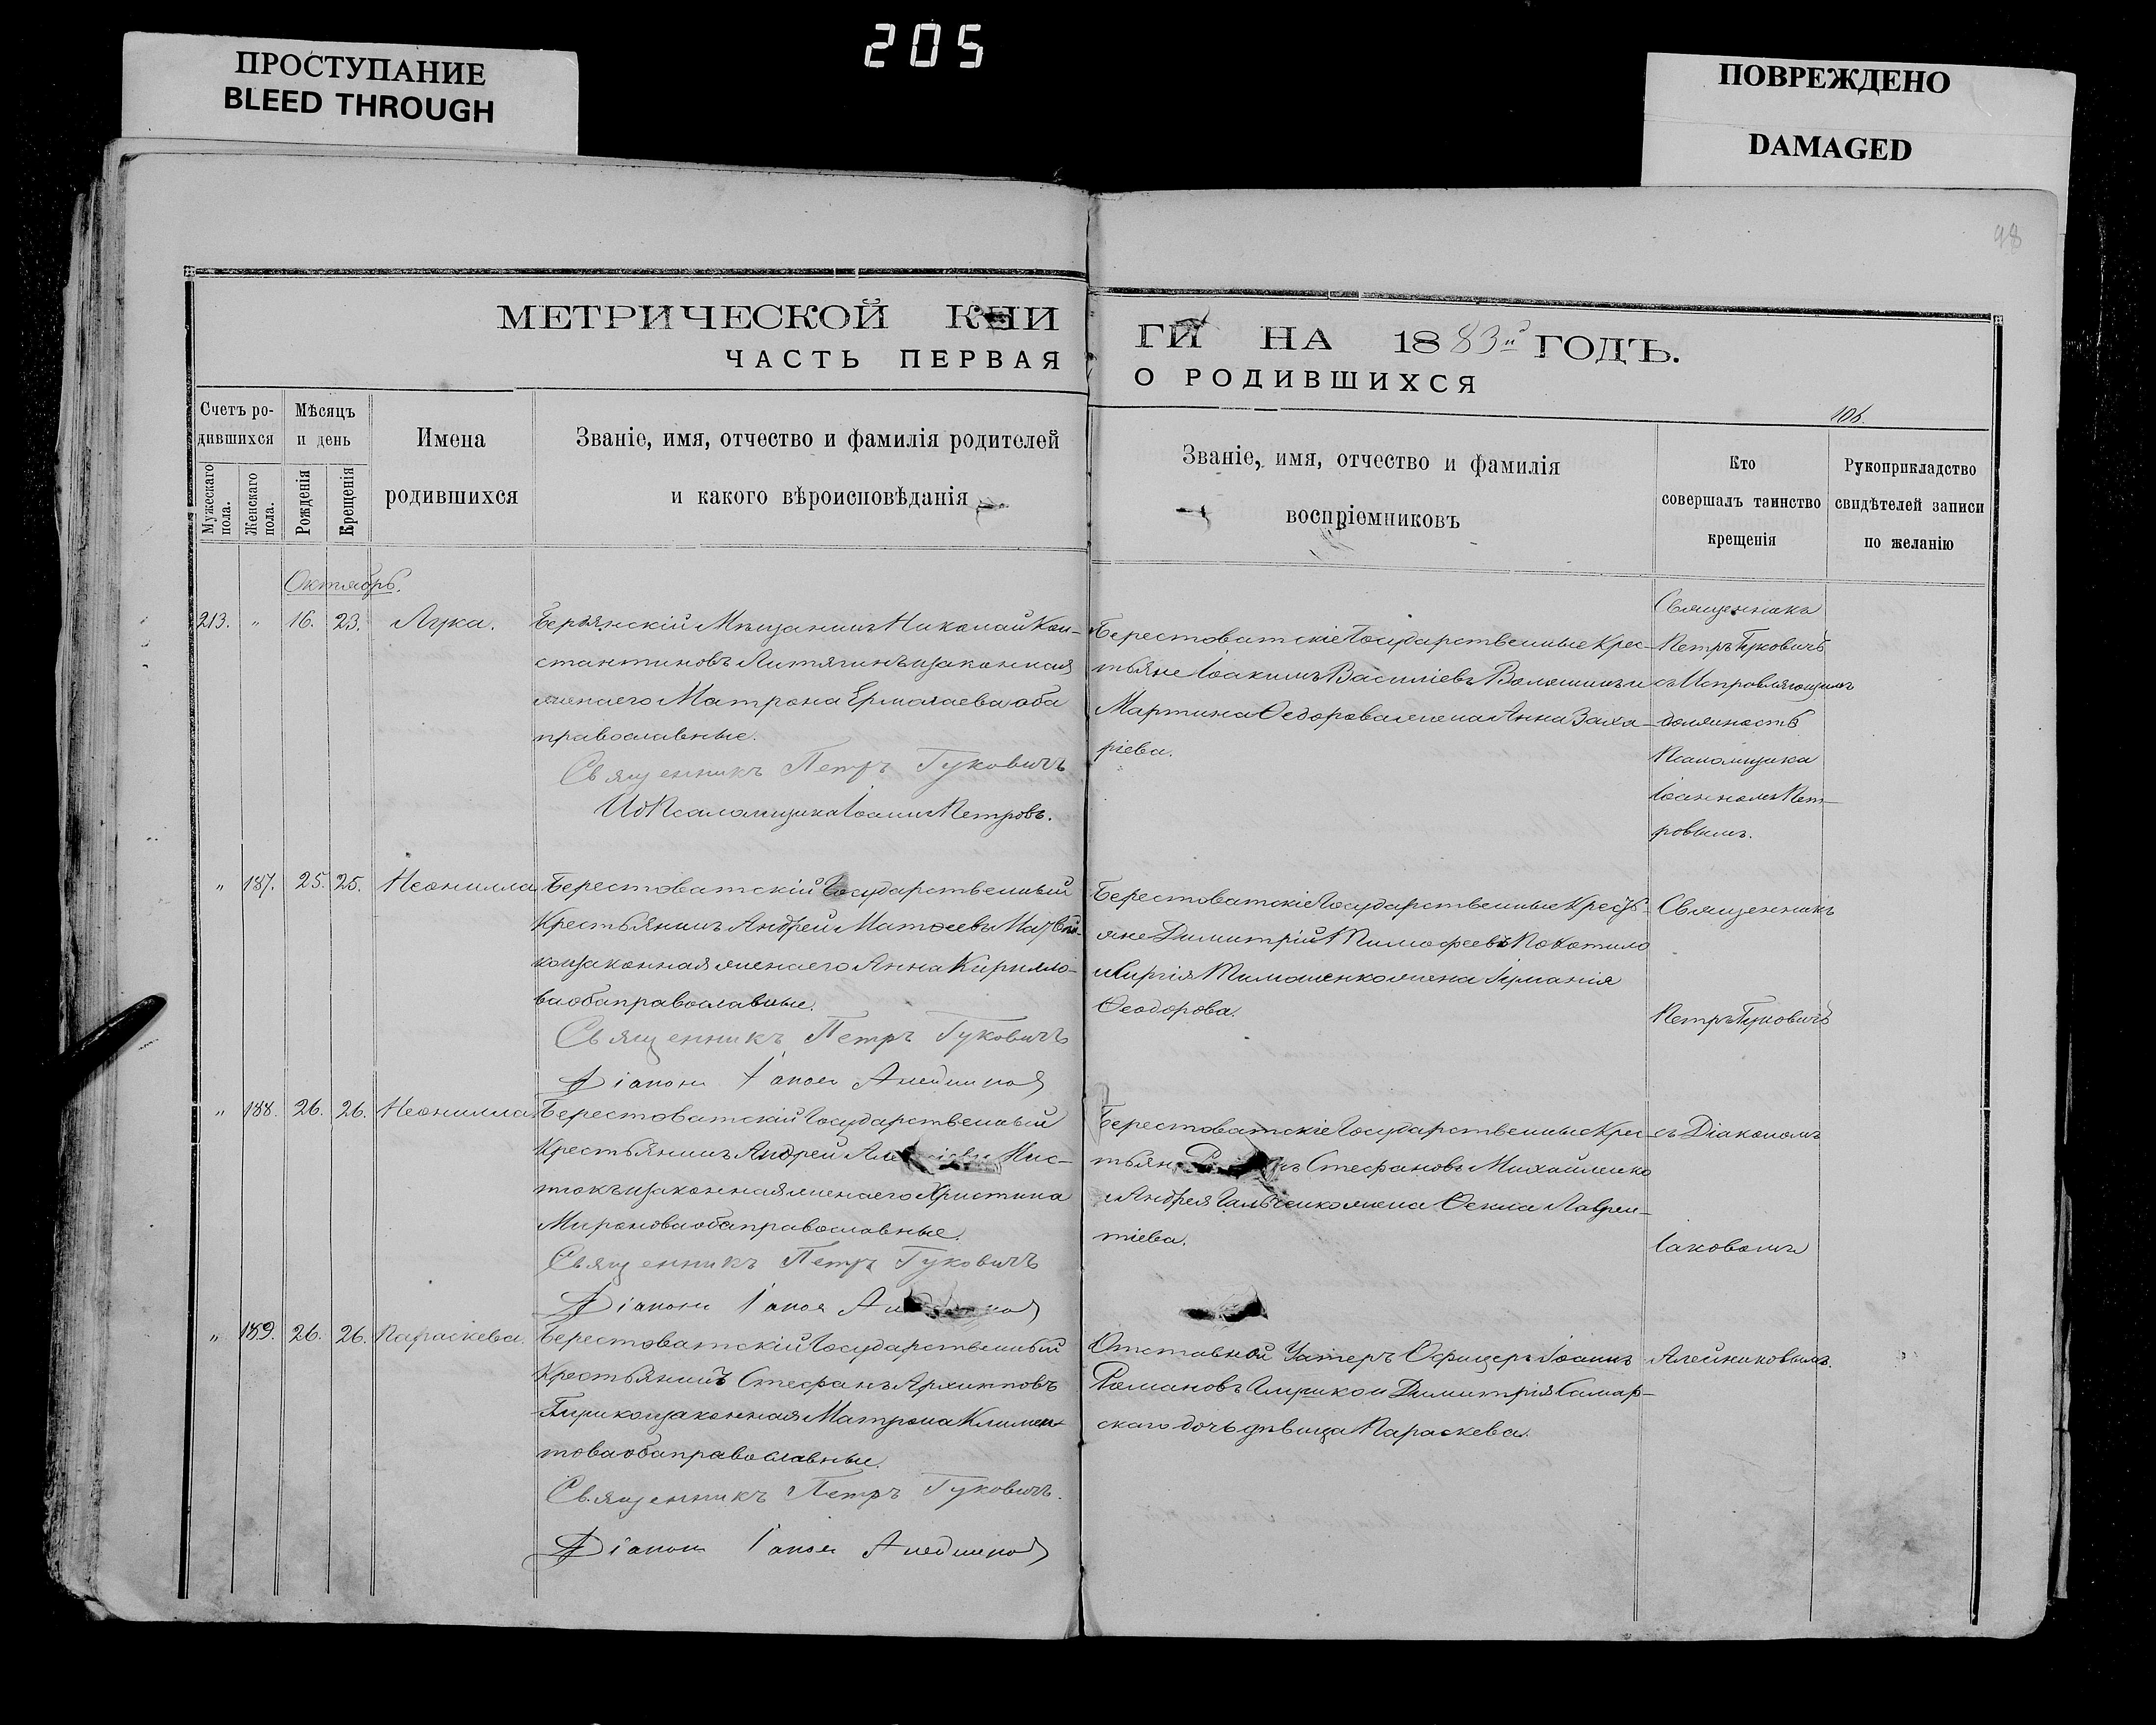 205
ПРОСТУПАНИЕ
BLEED THROUGH
ПОВРЕЖДЕНО
DAMAGED
98
МЕТРИЧЕСКОЙ КНИ
ЧАСТЬ ПЕРВАЯ
ГИ НА 1883й ГОДЪ.
О РОДИВШИХСЯ
106.
Счетъ ро-
дившихся
Мужескаго пола.
Женскаго пола.
Мѣсяцъ
и день
Рожденія
Крещенія
Имена
родившихся
Званіе, имя, отчество и фамилія родителей
и какого вѣроисповѣданія
Званіе, имя, отчество и фамилія
воспріемниковъ
Кто
совершалъ таинство
крещенія
Рукоприкладство
свидѣтелей записи
по желанію
Октябрь.
213. " 16. 23. Лука.
Бердянскій Мѣщанинъ Николай Кон-
стантиновъ Литягинъ и законная
жена его Матрона Ермолаева оба
православные.
Священникъ Петръ Гуковичъ
ИД Псаломщика Іоаннъ Петровъ.
Берестоватскіе Государственные Крес-
тьяне Іоакимъ Василіевъ Волошинъ и
Мартина Ѳедорова жена Анна Заха-
ріева.
Священникъ
Петръ Гуковичъ
съ Исправляющимъ
должность
Псаломщика
Іоанномъ Пет-
ровымъ.
" 187. 25. 25. Неонилла
Берестоватскій Государственный
Крестьянинъ Андрей Матѳеевъ
законная жена его Анна Кирилло-
ва оба православные.
Священникъ Петръ Гуковичъ
Діаконъ Іаковъ Алейников
Берестоватскіе Государственные Кресть-
яне Димитрій Тимофеевъ Покотило
и Сергія Тимошенко жена
Ѳеодорова.
Священникъ
Петръ Гуковичъ
" 188. 26. 26. Неонилла
Берестоватскій Государственный
Крестьянинъ Андрей
законная жена его Христина
Миронова оба православные.
Священникъ Петръ Гуковичъ
Діаконъ Іаковъ
Берестоватскіе Государственные Крес-
Стефановъ Михайленко
и Андрея Гальченко жена Ѳекла Лаврен-
тіева.
съ Діакономъ
Іаковомъ
" 189. 26. 26. Параскева.
Берестоватскій Государственный
Крестьянинъ Стефанъ Архиповъ
законная Матрона Климен-
това оба православные.
Священникъ Петръ Гуковичъ.
Діаконъ Іаковъ Алейников
Отставной Унтеръ Офицеръ Іоаннъ
Романовъ и Димитрія Самар-
скаго дочь дѣвица Параскева.
Алейниковымъ.